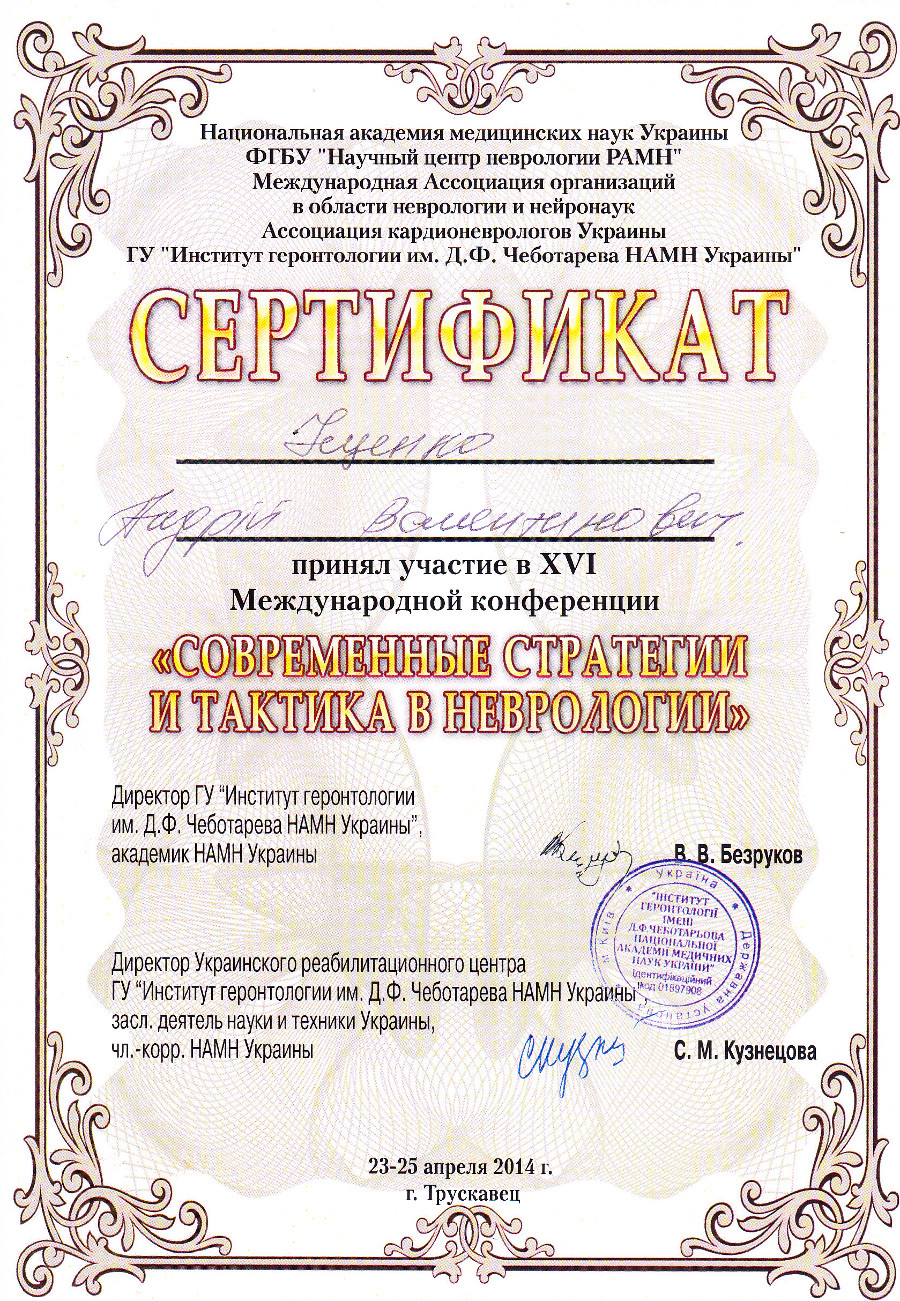 Национальная академия медицинских наук Украины
ФГБУ "Научный центр неврологии РАМН"
Международная Ассоциация организаций
в области неврологии и нейронаук
Ассоциация кардионеврологов Украины
ГУ "Институт геронтологии им. Д.Ф. Чеботарева НАМН Украины"
СЕРТИФИКАТ
Валентинович
принял участие в XVI
Международной конференции
«СОВРЕМЕННЫЕ СТРАТЕГИИ
И ТАКТИКА В НЕВРОЛОГИИ»
Директор ГУ “Институт геронтологии
им. Д.Ф. Чеботарева НАМН Украины”,
академик НАМН Украины
В. В. Безруков
Україна * Державна установа * м Київ
"ІНСТИТУТ
ГЕРОНТОЛОГІЇ
ІМЕНІ
Д.Ф.ЧЕБОТАРЬОВА
НАЦІОНАЛЬНОЇ
АКАДЕМІЇ МЕДИЧНИХ
НАУК УКРАЇНИ"
Ідентифікаційний
код 01897908
Директор Украинского реабилитационного центра
ГУ “Институт геронтологии им. Д.Ф. Чеботарева НАМН Украины”,
засл. деятель науки и техники Украины,
чл.-корр. НАМН Украины
С. М. Кузнецова
23-25 апреля 2014 г.
г. Трускавец